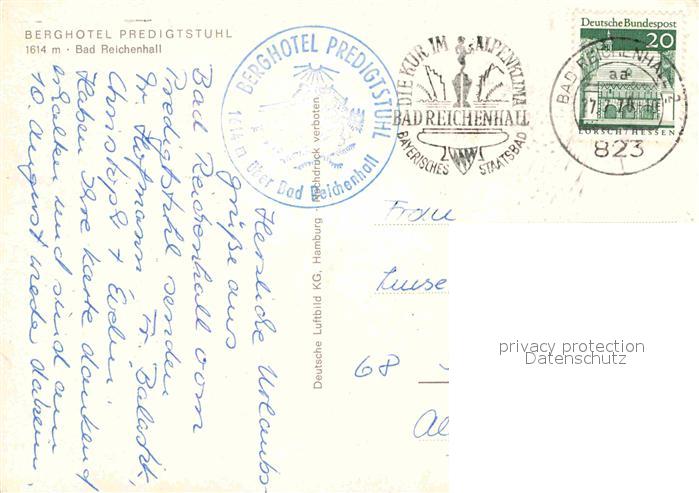 BERGHOTEL PREDIGTSTUHL
1614 m · Bad Reichenhall
Herzliche Urlaubs-
grüße aus
Bad Reichenhall vom
Predigtstuhl senden
Fr. Hofmann Fr.
Christoph + Evelin.
Haben Ihre Karte dankend
erhalten und sind am
10 August wieder daheim.
BERGHOTEL PREDIGTSTUHL
1614 m über Bad Reichenhall
Deutsche Luftbild KG, Hamburg · Nachdruck verboten
DIE KUR IM ALPENKLIMA
BAD REICHENHALL
BAYERISCHES STAATSBAD
Deutsche Bundespost
20
LORSCH/HESSEN
BAD REICHENHALL
aa
823
Frau
Luise
68
privacy protection
Datenschutz